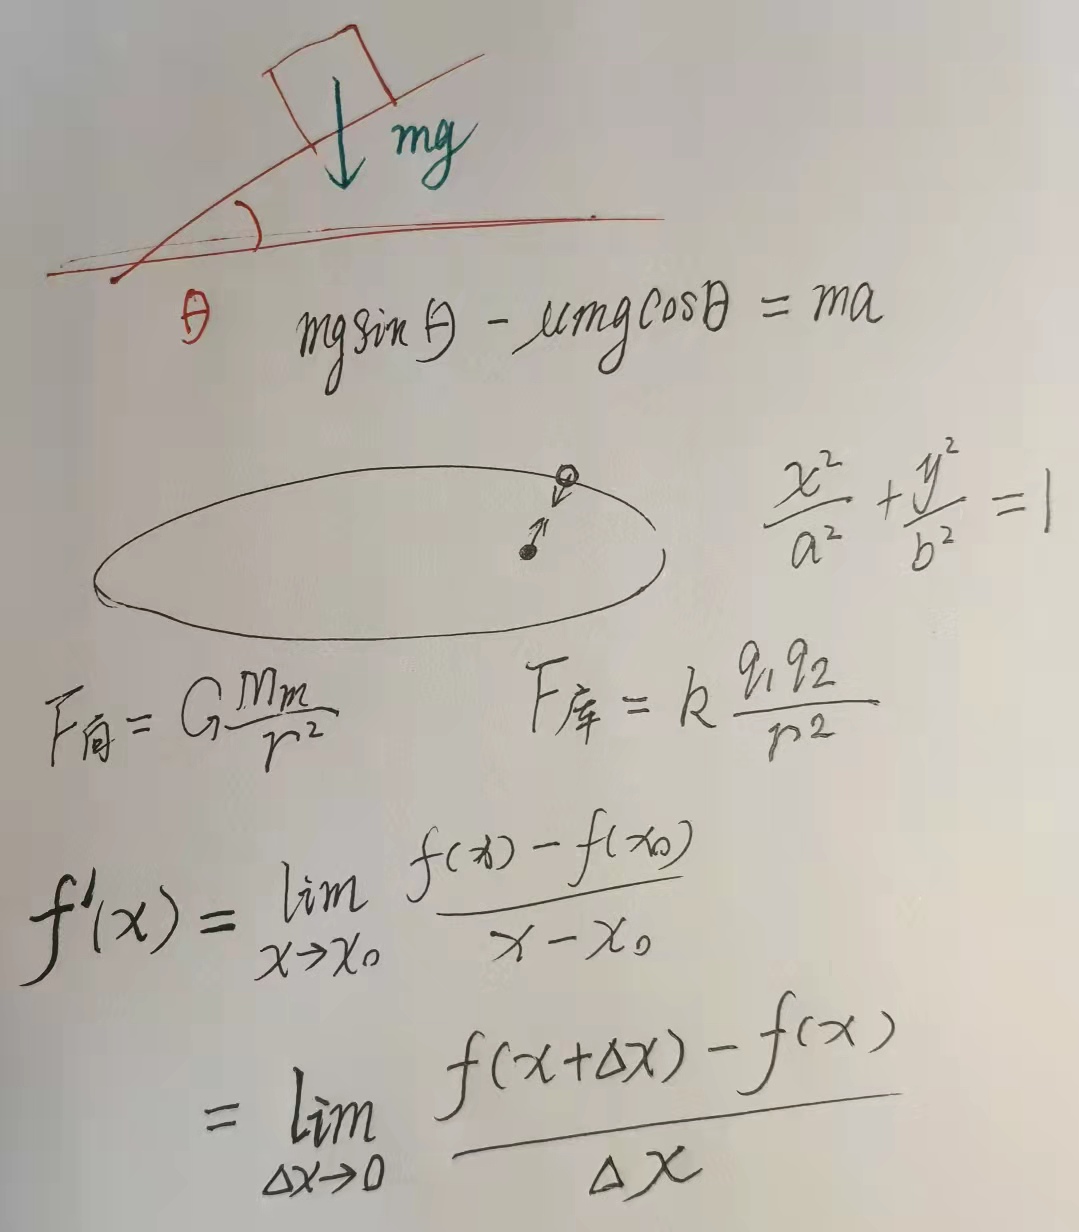 mg
θ
mg sinθ - μmg cosθ = ma
x²/a² + y²/b² = 1
F向 = G Mm/r²
F库 = k q₁q₂/r²
f'(x) = lim x→x₀ (f(x) - f(x₀))/(x - x₀)
= lim Δx→0 (f(x+Δx) - f(x))/Δx